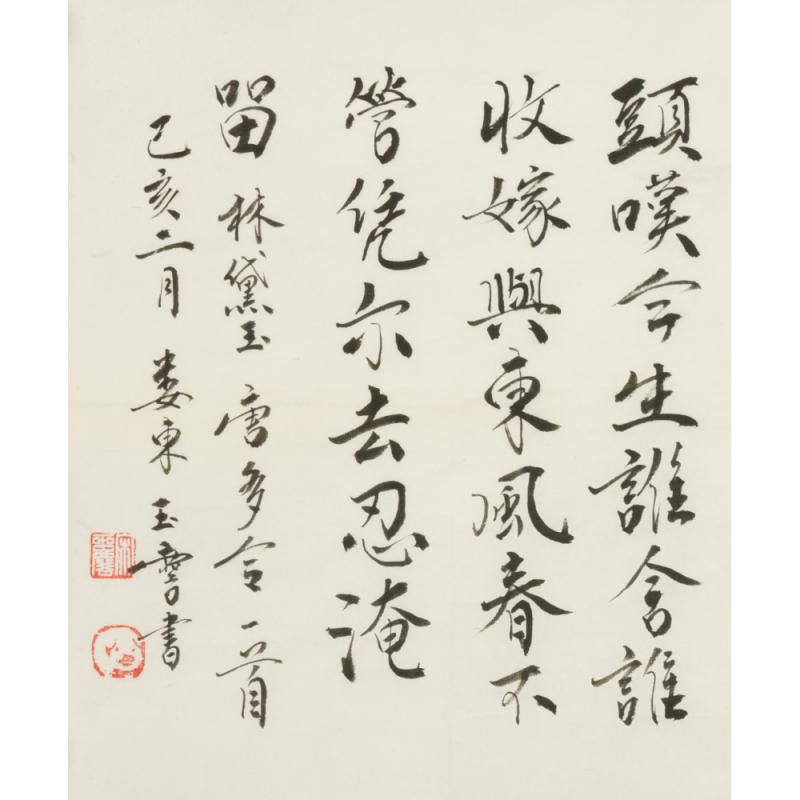 頭嘆今生誰舍誰
收嫁與東風春不
管凭尔去忍淹
留 林黛玉 唐多令一首
己亥二月 娄東玉書